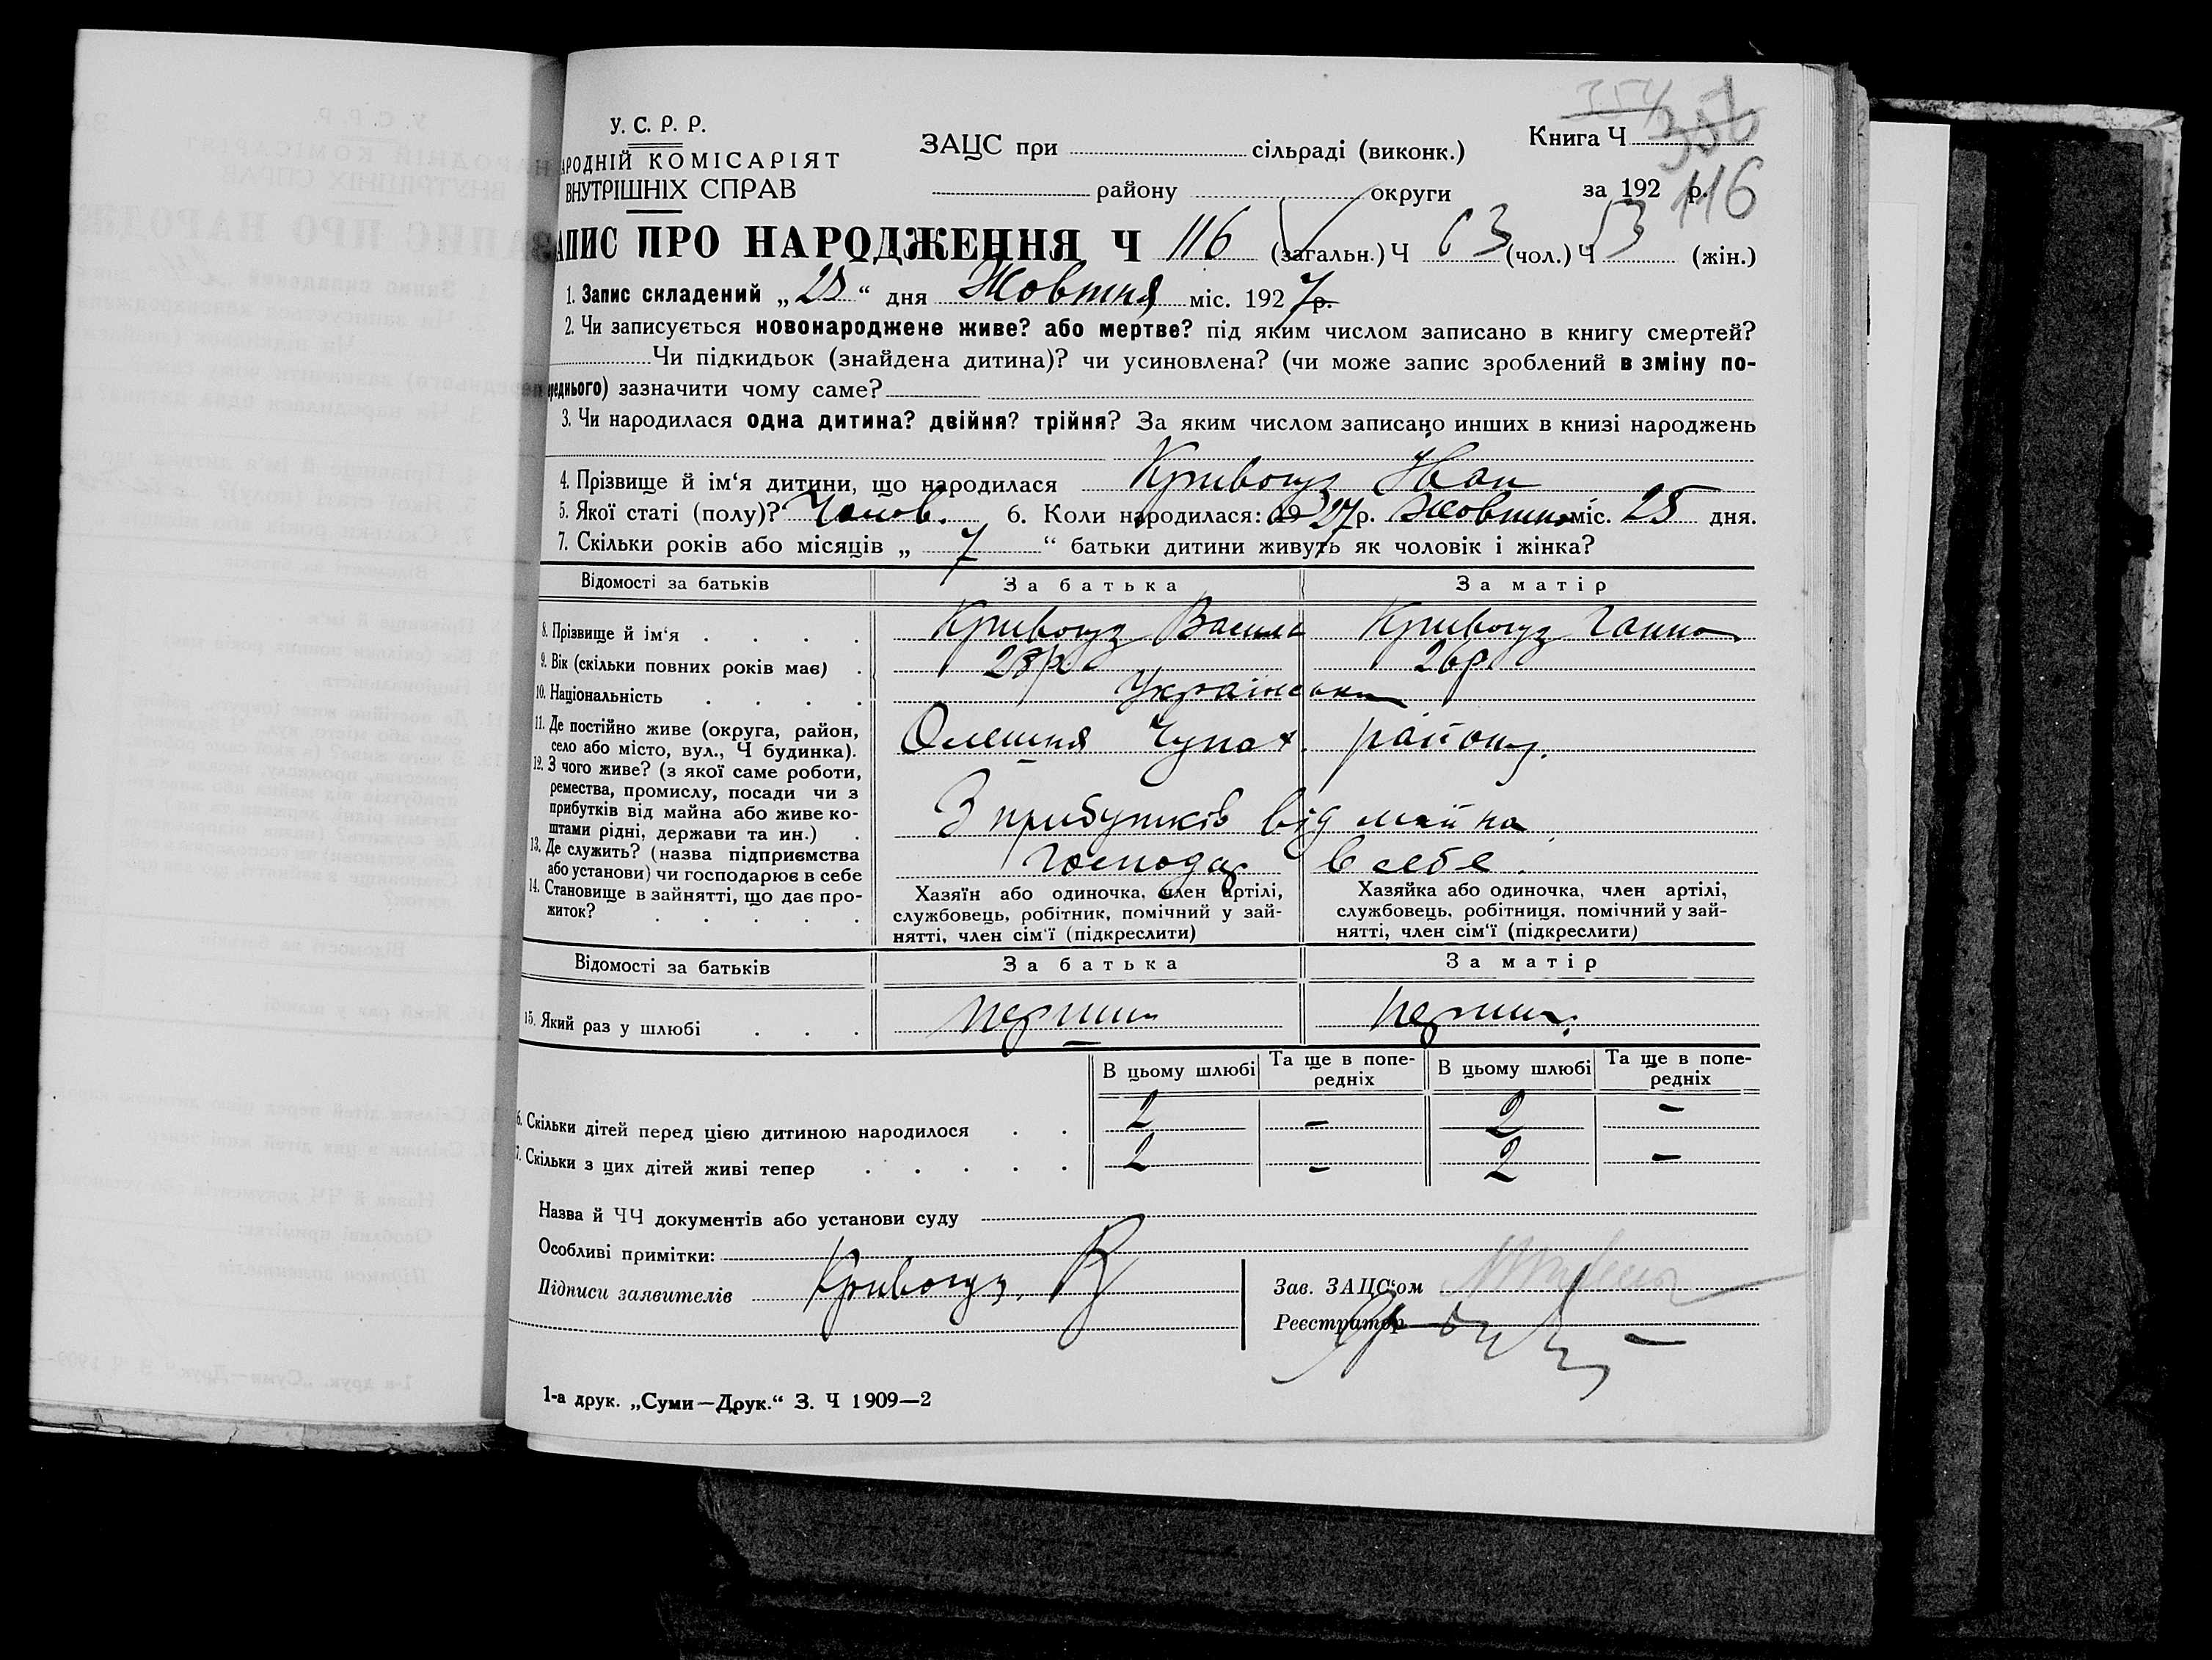 У. С. Р. Р.
АРОДНІЙ КОМІСАРІЯТ
ВНУТРІШНІХ СПРАВ
ЗАЦС при сільраді (виконк.)
району округи
354 356
Книга Ч
за 192 р.
116
АПИС ПРО НАРОДЖЕННЯ Ч 116 (загальн.) Ч 63 (чол.) Ч 53 (жін.)
1. Запис складений „ 28 “ дня Жовтня міс. 1927 р.
2. Чи записується новонароджене живе? або мертве? під яким числом записано в книгу смертей?
Чи підкидьок (знайдена дитина)? чи усиновлена? (чи може запис зроблений в зміну по-
ереднього) зазначити чому саме?
3. Чи народилася одна дитина? двійня? трійня? За яким числом записано инших в книзі народжень
4. Прізвище й ім‘я дитини, що народилася Кривогуз Іван
5. Якої статі (полу)? Чолов. 6. Коли народилася: 1927 р. Жовтня міс. 25 дня.
7. Скільки років або місяців „ 7 “ батьки дитини живуть як чоловік і жінка?
Відомості за батьків За батька За матір
8. Прізвище й ім‘я . . . . Кривогуз Василь Кривогуз Ганна
9. Вік (скільки повних років має) . 28 р. 26 р.
10. Національність . . . . Українськи
11. Де постійно живе (округа, район,
село або місто, вул., Ч будинка). Олешня Чупах. району.
12. З чого живе? (з якої саме роботи,
ремества, промислу, посади чи з
прибутків від майна або живе ко-
штами рідні, держави та ин.) . З прибутків від майна
13. Де служить? (назва підприємства
або установи) чи господарює в себе Господар в себе.
14. Становище в зайнятті, що дає про-
житок? . . . .
Хазяїн або одиночка, член артілі,
службовець, робітник, помічний у зай-
нятті, член сім‘ї (підкреслити)
Хазяйка або одиночка, член артілі,
службовець, робітниця, помічний у зай-
нятті, член сім‘ї (підкреслити)
Відомості за батьків За батька За матір
15. Який раз у шлюбі . . . перший перший.
В цьому шлюбі Та ще в попе-
редніх В цьому шлюбі Та ще в попе-
редніх
6. Скільки дітей перед цією дитиною народилося . . 2 – 2 –
7. Скільки з цих дітей живі тепер . . . . . 2 – 2 –
Назва й ЧЧ документів або установи суду
Особливі примітки:
Підписи заявителів Кривогуз В
Зав. ЗАЦС‘ом
Реєстратор
1-а друк. „Суми—Друк.“ З. Ч 1909—2